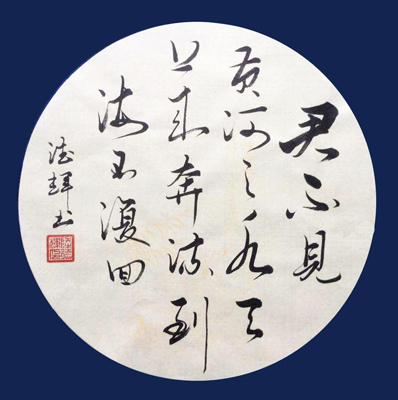 君不見
黄河之水天
上来奔流到
海不復回
德輝书